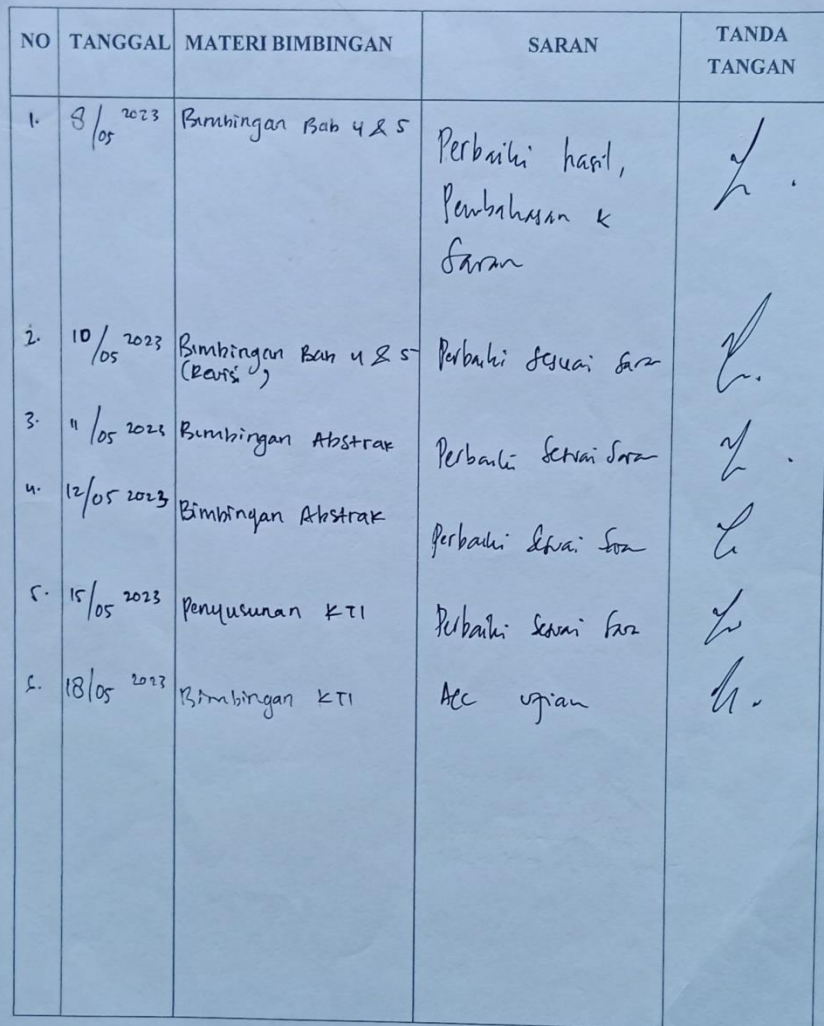 NO TANGGAL MATERI BIMBINGAN SARAN TANDA TANGAN
1. 8/05 2023 Bimbingan Bab 4 & 5 Perbaiki hasil,
Pembahasan &
Saran
2. 10/05 2023 Bimbingan Bab 4 & 5 Perbaiki sesuai saran
(Revisi)
3. 11/05 2023 Bimbingan Abstrak Perbaiki sesuai saran
4. 12/05 2023 Bimbingan Abstrak Perbaiki sesuai saran
5. 15/05 2023 Penyusunan KTI Perbaiki sesuai saran
6. 18/05 2023 Bimbingan KTI Acc ujian